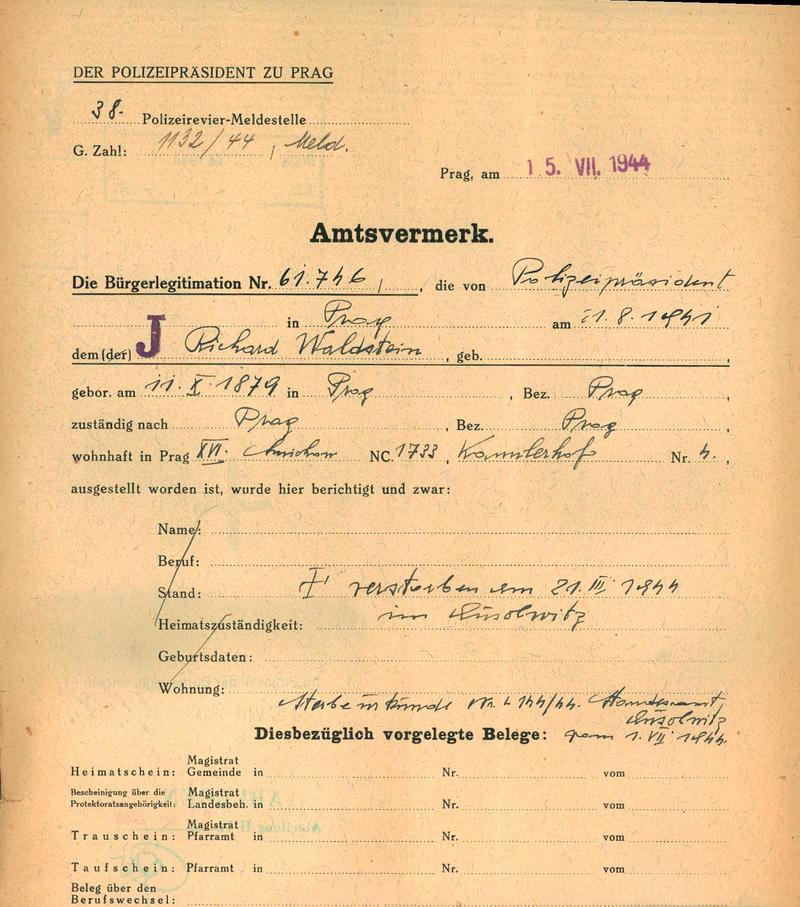 DER POLIZEIPRÄSIDENT ZU PRAG
38. Polizeirevier-Meldestelle
G. Zahl: 1132/44, Meld.
Prag, am 15. VII. 1944
Amtsvermerk.
Die Bürgerlegitimation Nr. 61.746, , die von Polizeipräsident
in Prag am 21.8.1941
dem (der) J Richard Waldstein , geb. ,
gebor. am 11. X. 1879 in Prag , Bez. Prag ,
zuständig nach Prag , Bez. Prag ,
wohnhaft in Prag XVI. NC. 1733 , Nr. 4. ,
ausgestellt worden ist, wurde hier berichtigt und zwar:
Name:
Beruf:
Stand: verstorben am 21. III. 1944
Heimatszuständigkeit: in
Geburtsdaten:
Wohnung:
Sterbeurkunde Nr. Standesamt,
Diesbezüglich vorgelegte Belege: vom 1. VII. 1944.
Heimatschein: Magistrat Gemeinde in Nr. vom
Bescheinigung über die Protektoratsangehörigkeit: Magistrat Landesbeh. in Nr. vom
Trauschein: Magistrat Pfarramt in Nr. vom
Taufschein: Pfarramt in Nr. vom
Beleg über den
Berufswechsel: